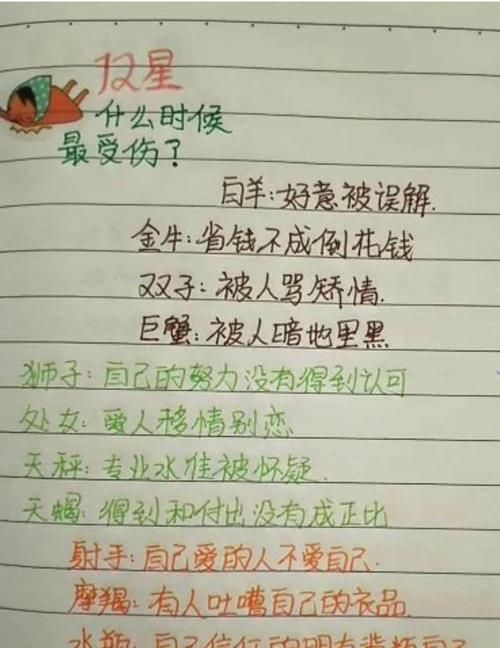 汉星
什么时候
最受伤?
白羊:好意被误解.
金牛:省钱不成倒花钱
双子:被人骂矫情.
巨蟹:被人暗地里黑
狮子:自己的努力没有得到认可
处女:爱人移情别恋
天秤:专业水准被怀疑.
天蝎:得到和付出没有成正比
射手:自己爱的人不爱自己.
摩羯:有人吐嘈自己的衣品.
水瓶:自己信任的朋友背叛自己